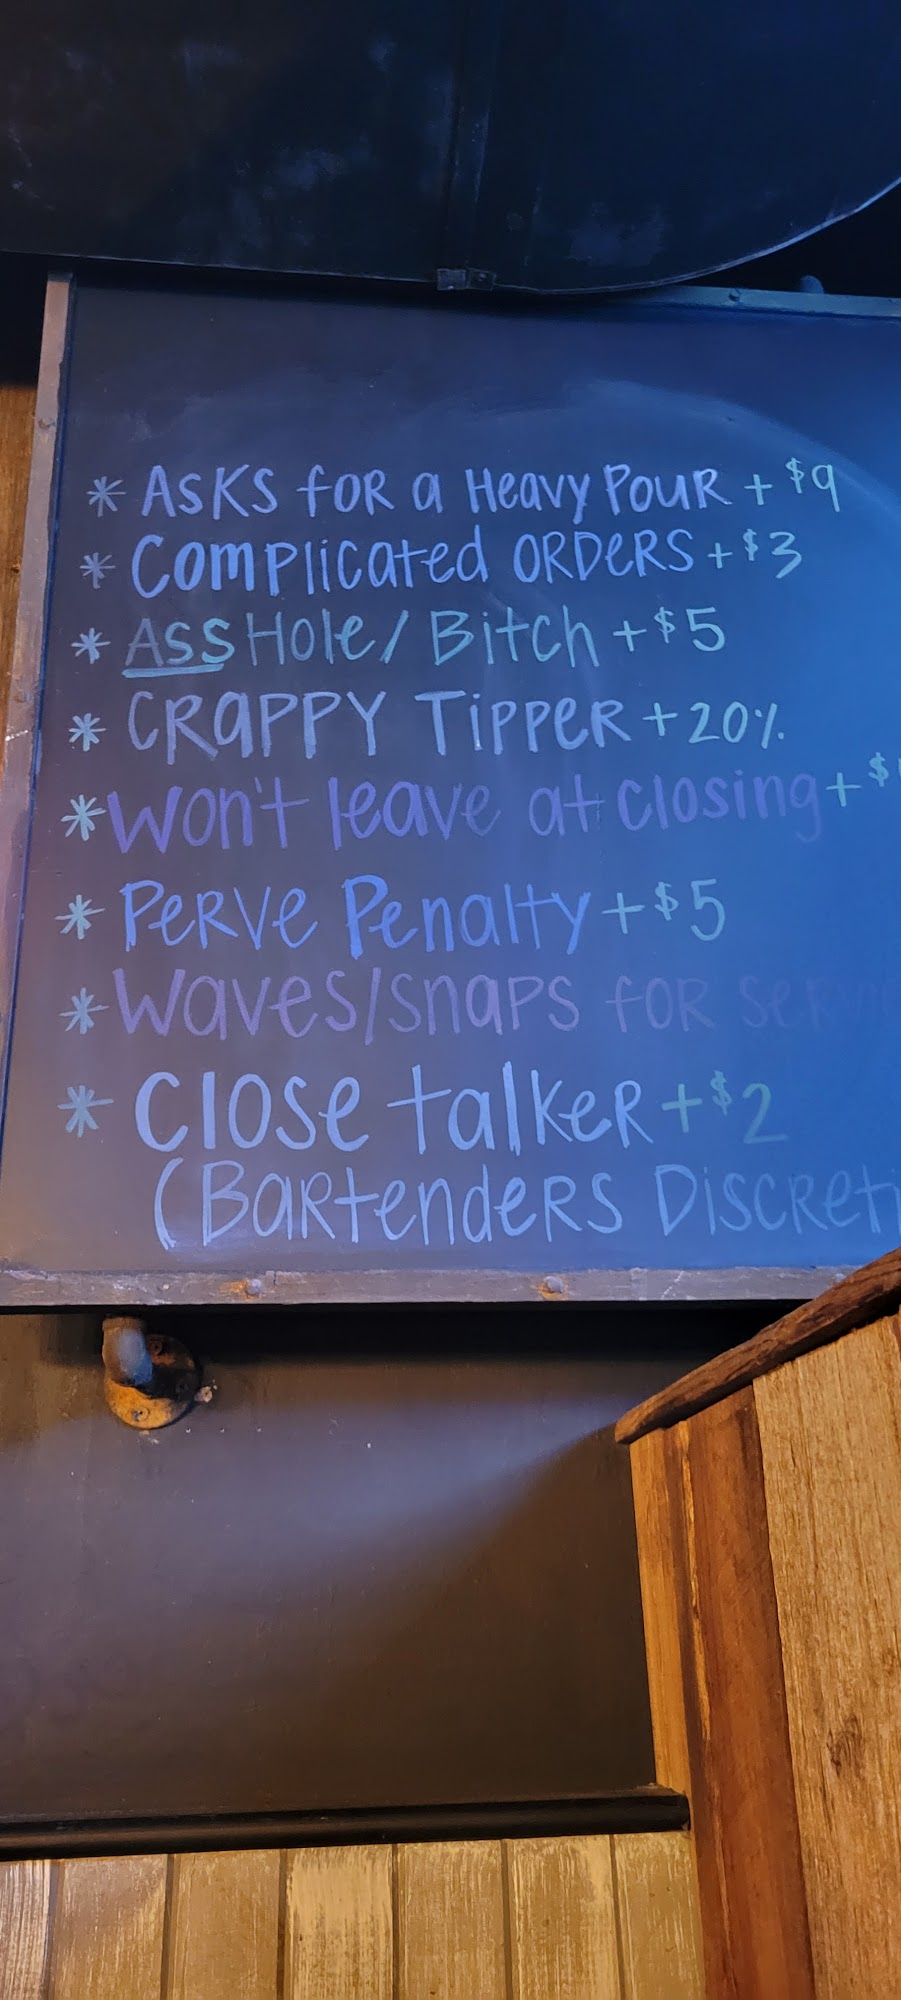 * Asks for a Heavy Pour + $9
* Complicated ORDERS + $3
* AssHole/Bitch + $5
* CRAPPY TIPPER + 20%
* Won't leave at closing + $
* Perve Penalty + $5
* Waves/snaps for
* Close talker + $2
(Bartenders